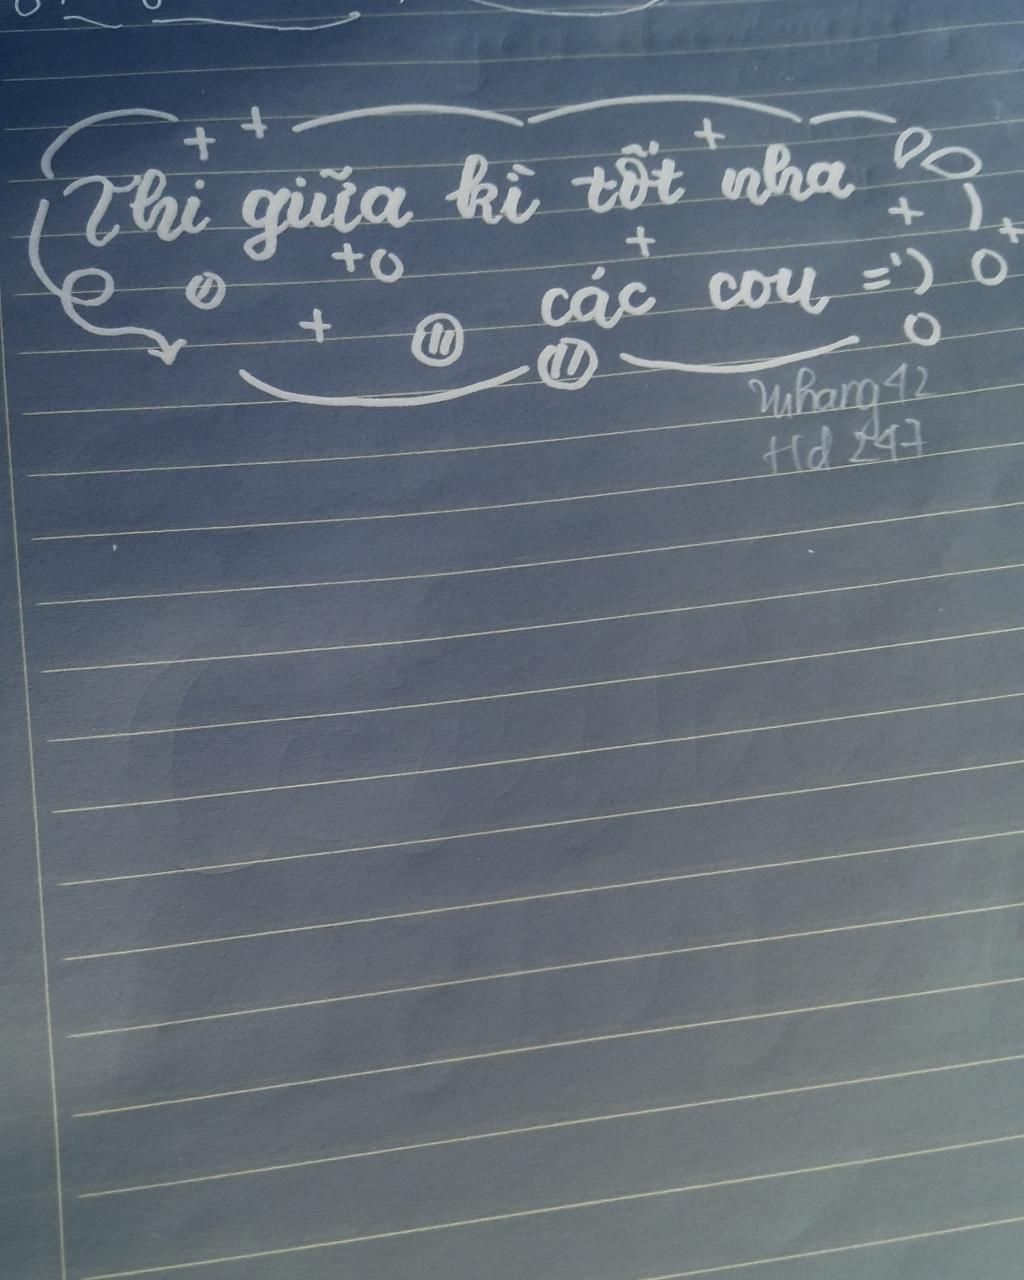 Thi giữa kì tốt nha
các cou =')
Nhang42
Hd 247